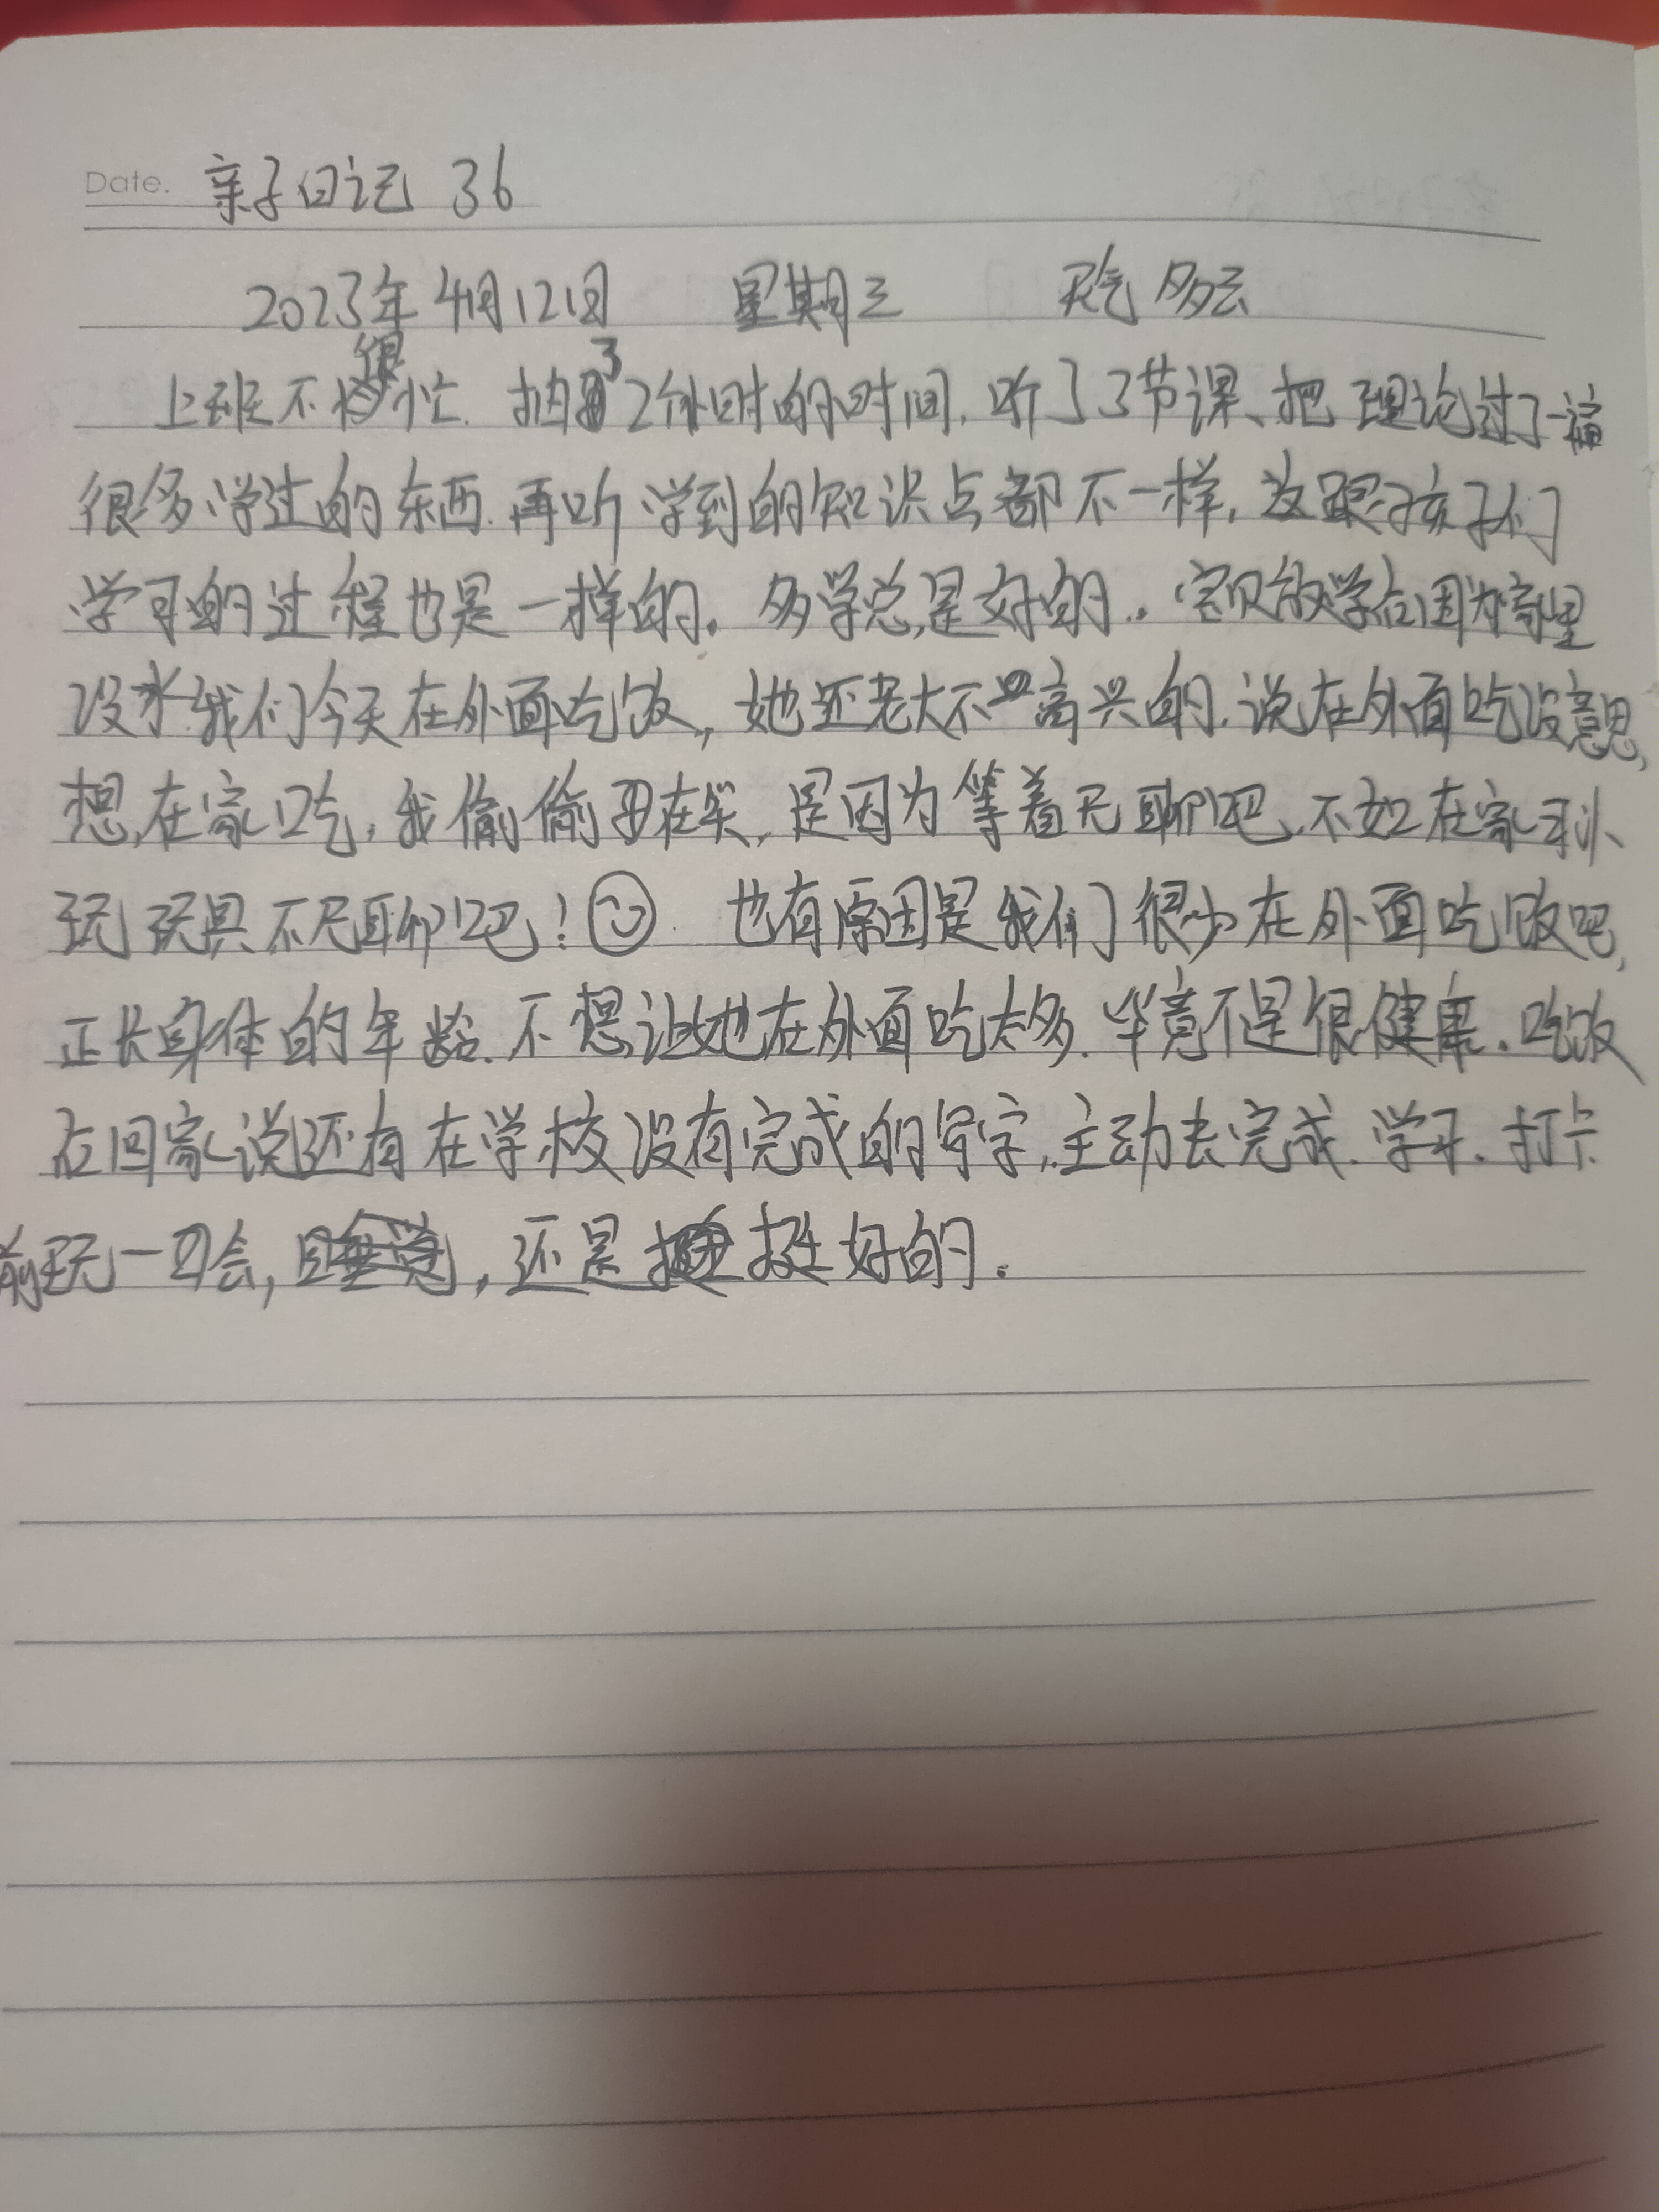 Date. 亲子日记 36
2023年4月12日 星期三 天气 多云
上班不很忙. 抽了2个小时的时间, 听了3节课、把理论过了一遍
很多学过的东西. 再听学到的知识点都不一样, 这跟孩子们
学习的过程也是一样的. 多学总是好的.. 宝贝放学后因为家里
没水我们今天在外面吃饭, 她还老大不高兴的, 说在外面吃没意思,
想在家吃, 我偷偷在笑, 是因为等着无聊吧, 不如在家
玩玩具不无聊吧! 也有原因是我们很少在外面吃饭吧,
正长身体的年龄. 不想让她在外面吃太多. 毕竟不是很健康. 吃饭
后回家说还有在学校没有完成的写字, 主动去完成. 学习、打卡
前玩一会, 睡觉, 还是挺好的.